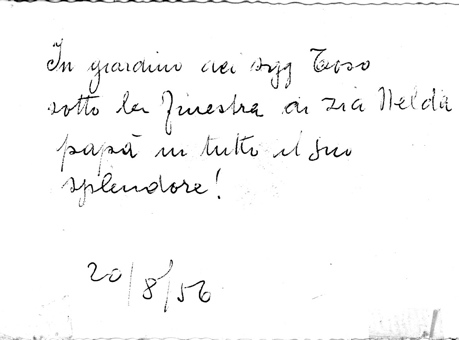 In giardino dei sigg Toso
sotto la finestra di zia Nelda
papà in tutto il suo
splendore!
20/8/56